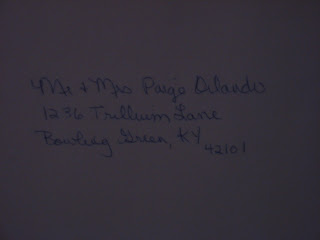 Mr + Mrs Paige Orlando
1236 Trillium Lane
Bowling Green, KY
42101